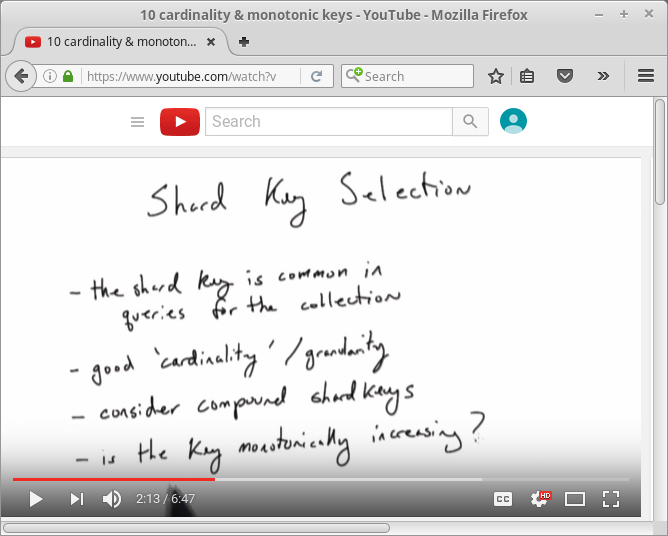 10 cardinality & monotonic keys - YouTube - Mozilla Firefox
10 cardinality & monoton...
https://www.youtube.com/watch?v
Search
Search
Shard Key Selection
- the shard key is common in
queries for the collection
- good 'cardinality' / granularity
- consider compound shard keys
- is the key monotonically increasing?
2:13 / 6:47
CC
HD